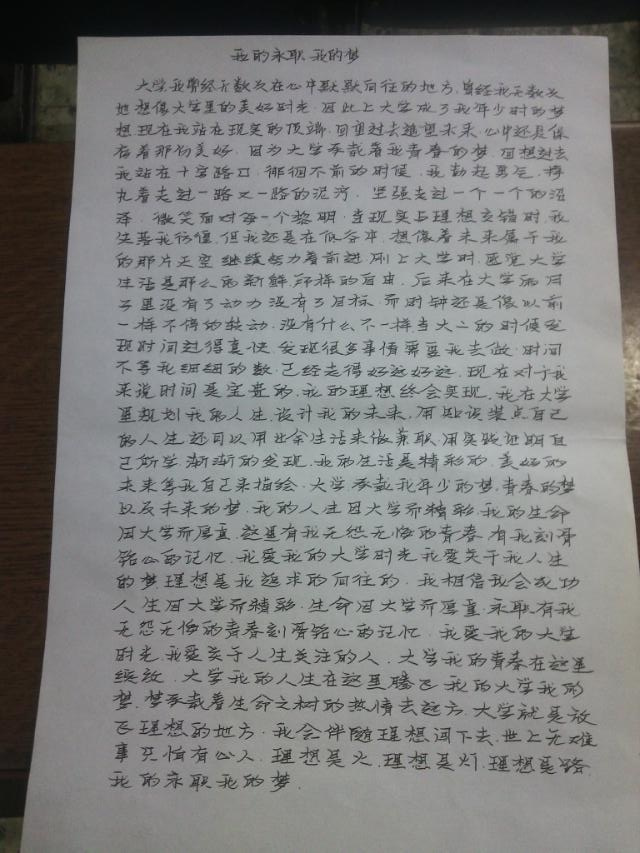 我的永职我的梦
大学我曾经无数次在心中默默向往的地方,曾经我无数次
地想像大学里的美好时光.因此上大学成了我年少时的梦
想现在我站在现实的顶端.回望过去遥望未来.心中还是保
存着那份美好.因为大学承载着我青春的梦.回想过去
我站在十字路口.徘徊不前的时候.我勤起勇气.挣
扎着走过一路又一路的泥泞.坚强走过一个一个的沼
泽.微笑面对每一个黎明.当现实与理想交错时.我
失落我彷徨.但我还是在低谷中.想像着未来属于我
的那片天空继续努力着前进.刚上大学时.感觉大学
生活是那么的新鲜.那样的自由.后来在大学的日
子里没有了动力没有了目标.而时钟还是像以前
一样不停的转动.没有什么不一样当大二的时候发
现时间过得真快.发现很多事情需要我去做.时间
不等我细细的数.已经走得好远好远.现在对于我
来说时间是宝贵的.我的理想终会实现.我在大学
里规划我的人生.设计我的未来.用知识装点自己
的人生还可以用业余生活来做兼职.用实践证明自
己所学.渐渐的发现.我的生活是精彩的.美好的
未来等我自己来描绘.大学承载我年少的梦.青春的梦
以及未来的梦.我的人生因大学而精彩.我的生命
因大学而厚重.这里有我无怨无悔的青春.有我刻骨
铭心的记忆.我爱我的大学时光我爱关于我人生
的梦理想是我追求的向往的.我相信我会成功
人生因大学而精彩.生命因大学而厚重.永职有我
无怨无悔的青春刻骨铭心的记忆.我爱我的大学
时光.我爱关于人生关注的人.大学我的青春在这里
绽放.大学我的人生在这里腾飞.我的大学我的
梦.梦承载着生命之树的热情去远方.大学就是放
飞理想的地方.我会伴随理想闯下去.世上无难
事只怕有心人.理想是火.理想是灯.理想是路.
我的永职我的梦.